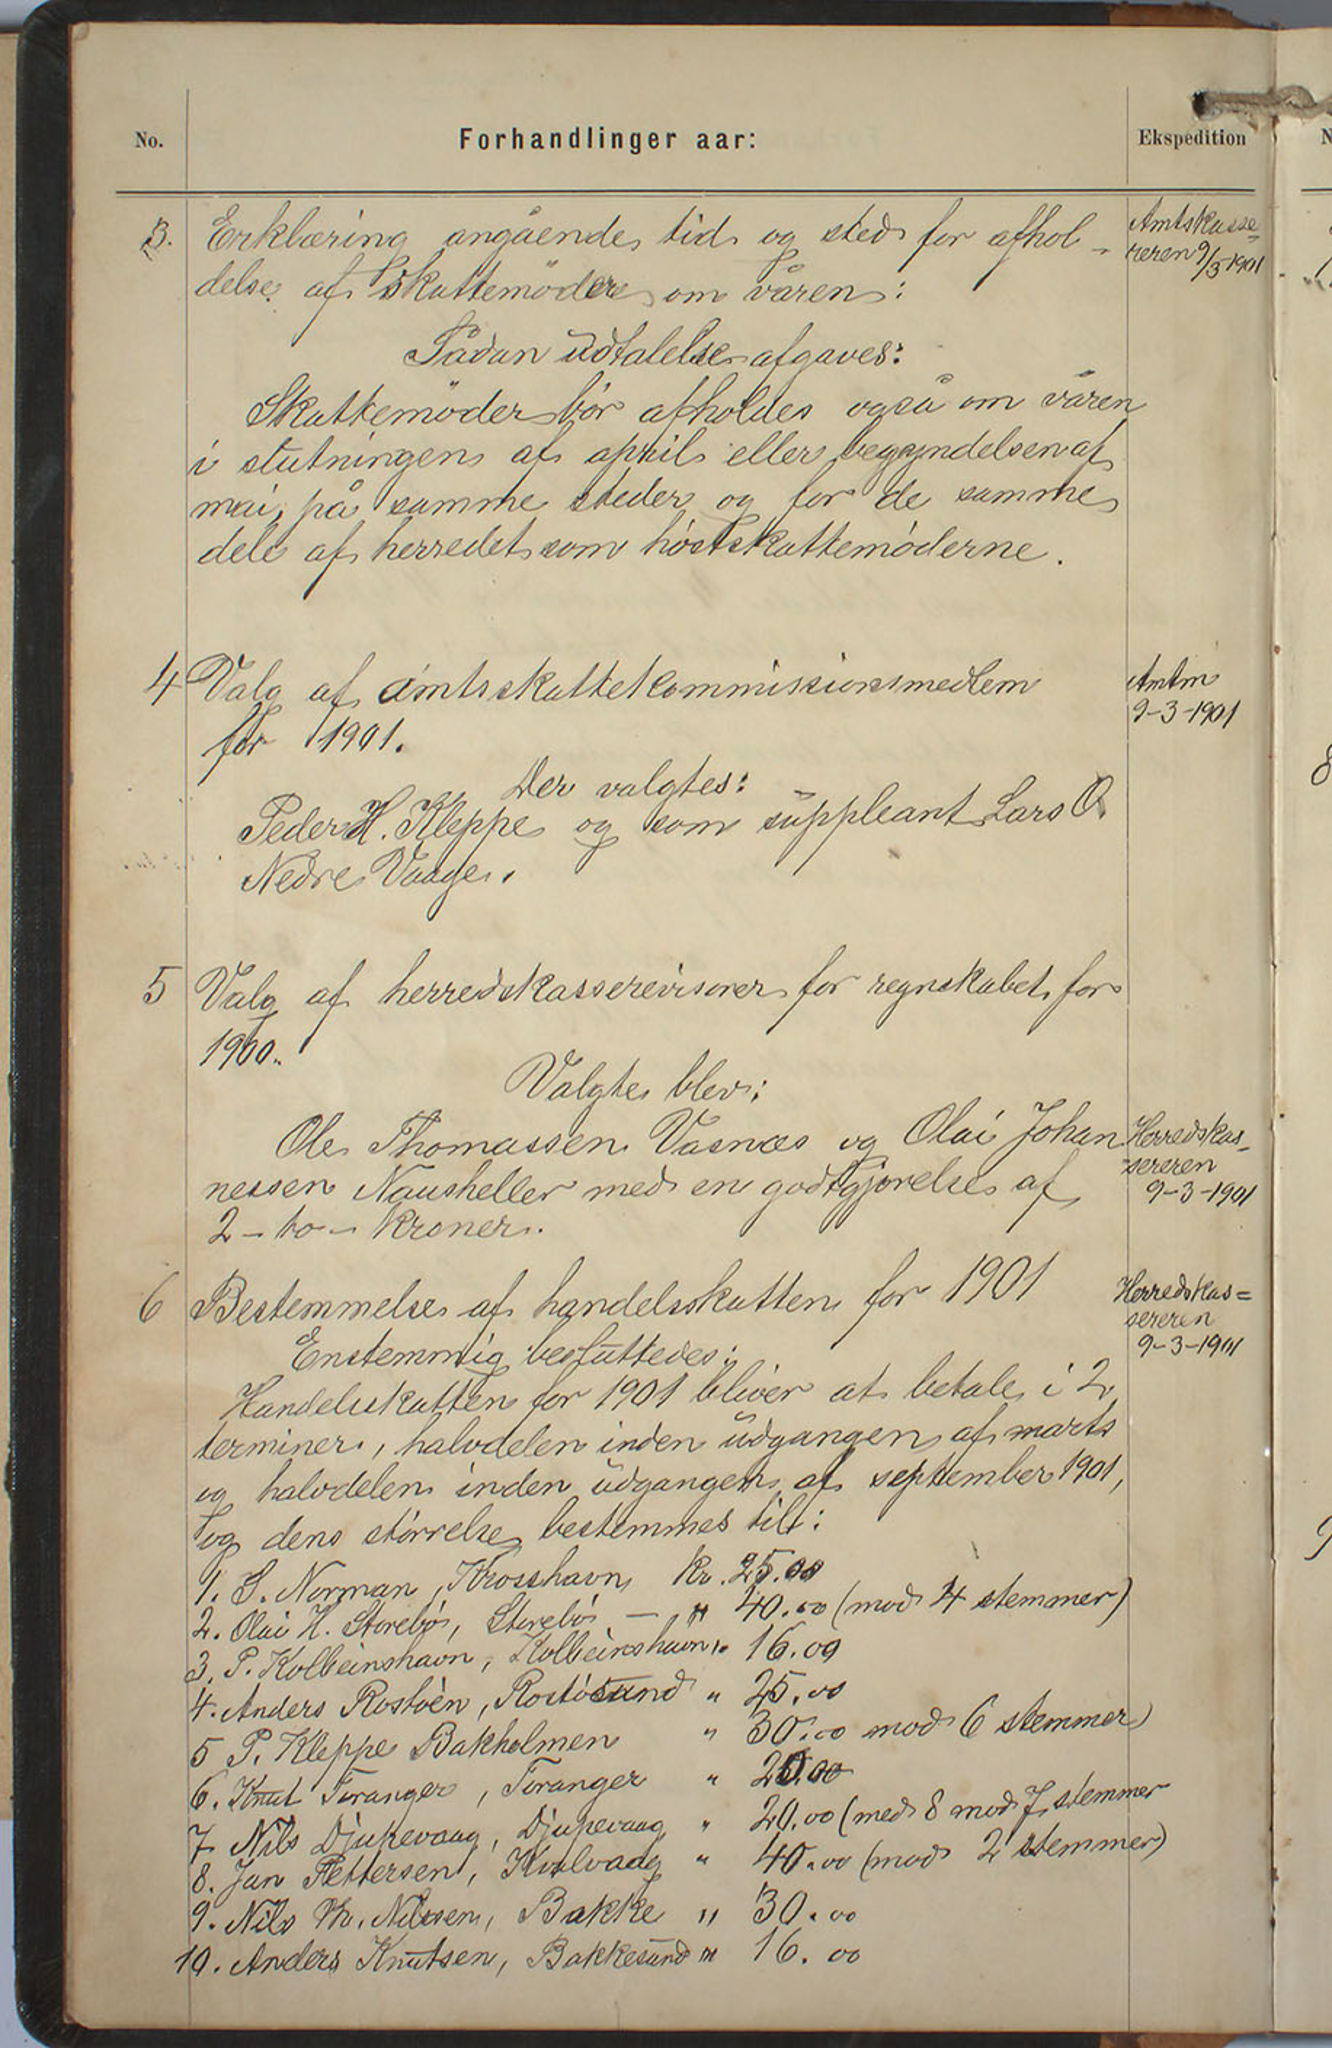 No. Forhandlinger aar: Ekspedition
3. Erklæring angående tid og sted for afhol- Amtskasse-
delse af skattemöder om våren: reren 9/3 1901
Sådan udtalelse afgaves:
Skattemöder bör afholdes også om våren
i slutningen af april eller begyndelsen af
mai på samme steder og for de samme
dele af herredet som höstskattemöderne.
4 Valg af amtsskattekommissionsmedlem Amtm
for 1901. 9-3-1901
Der valgtes:
Peder H. Kleppe og som suppleant Lars O.
Nedre Vaage.
5 Valg af herredskasserevisorer for regnskabet for
1900.
Valgte blev:
Ole Thomassen Vasnæs og Olai Johan Herredskas-
nessen Nausheller med en godtgjörelse af sereren
2 - to - kroner. 9-3-1901
6 Bestemmelse af handelsskatten for 1901 Herredskas=
Enstemmig besluttedes: sereren
9-3-1901
Handelsskatten for 1901 bliver at betale i 2
terminer, halvdelen inden udgangen af marts
og halvdelen inden udgangen af september 1901,
og dens störrelse bestemmes til:
1. S. Norman, Krosshavn Kr. 25.00
2. Olai H. Storebö, Storebö — " 40.00 (mod 4 stemmer)
3. P. Kolbeinshavn, Kolbeinshavn " 16.00
4. Anders Rostöen, Rostösund " 25.00
5 P. Kleppe Bakholmen " 30.00 mod 6 stemmer)
6. Knut Toranger, Toranger " 20.00
7 Nils Djupevaag, Djupevaag " 20.00 (med 8 mod 7 stemmer
8. Jan Pettersen, Kvalvaag " 40.00 (mod 2 stemmer)
9. Nils Th. Nilssen, Bakke " 30.00
10. Anders Knutsen, Bakkesund " 16.00